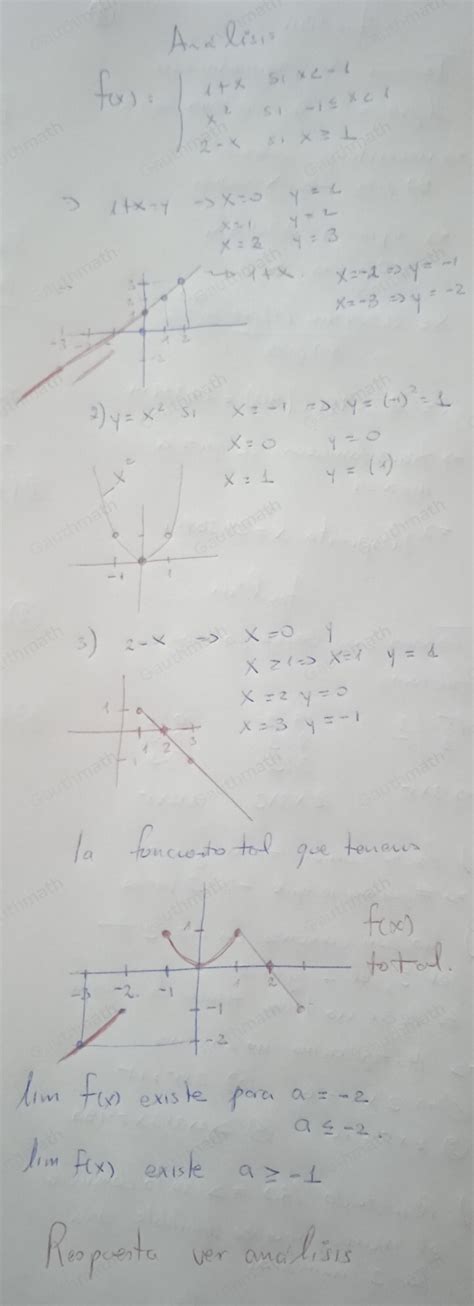 Análisis
f(x): { 1+x si x<-1
x² si -1≤x<1
2-x si x≥1
1+x=y => x=0 y=1
x=1 y=2
x=2 y=3
1+x x=-2 => y=-1
x=-3 => y=-2
3
2
1
-3 1 2
-2
2) y=x² si x=-1 => y=(-1)²=1
x=0 y=0
x=1 y=(1)
x²
-1 1
3) 2-x => x=0 y
x≥1 => x=1 y=1
x=2 y=0
x=3 y=-1
1
1 2 3
-1
la funcion total que tenemos
1
f(x)
total.
-3 -2 -1 1 2
-1
-2
lim f(x) existe para a=-2
a≤-2.
lim f(x) existe a≥-1
Respuesta ver análisis